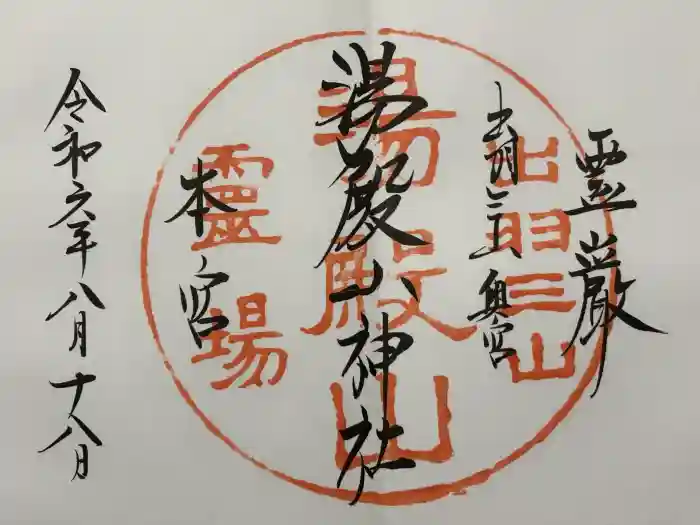 霊巌
出羽三山 奥宮
湯殿山神社
本宮
令和六年八月十八日
出羽三山
湯殿山
霊場